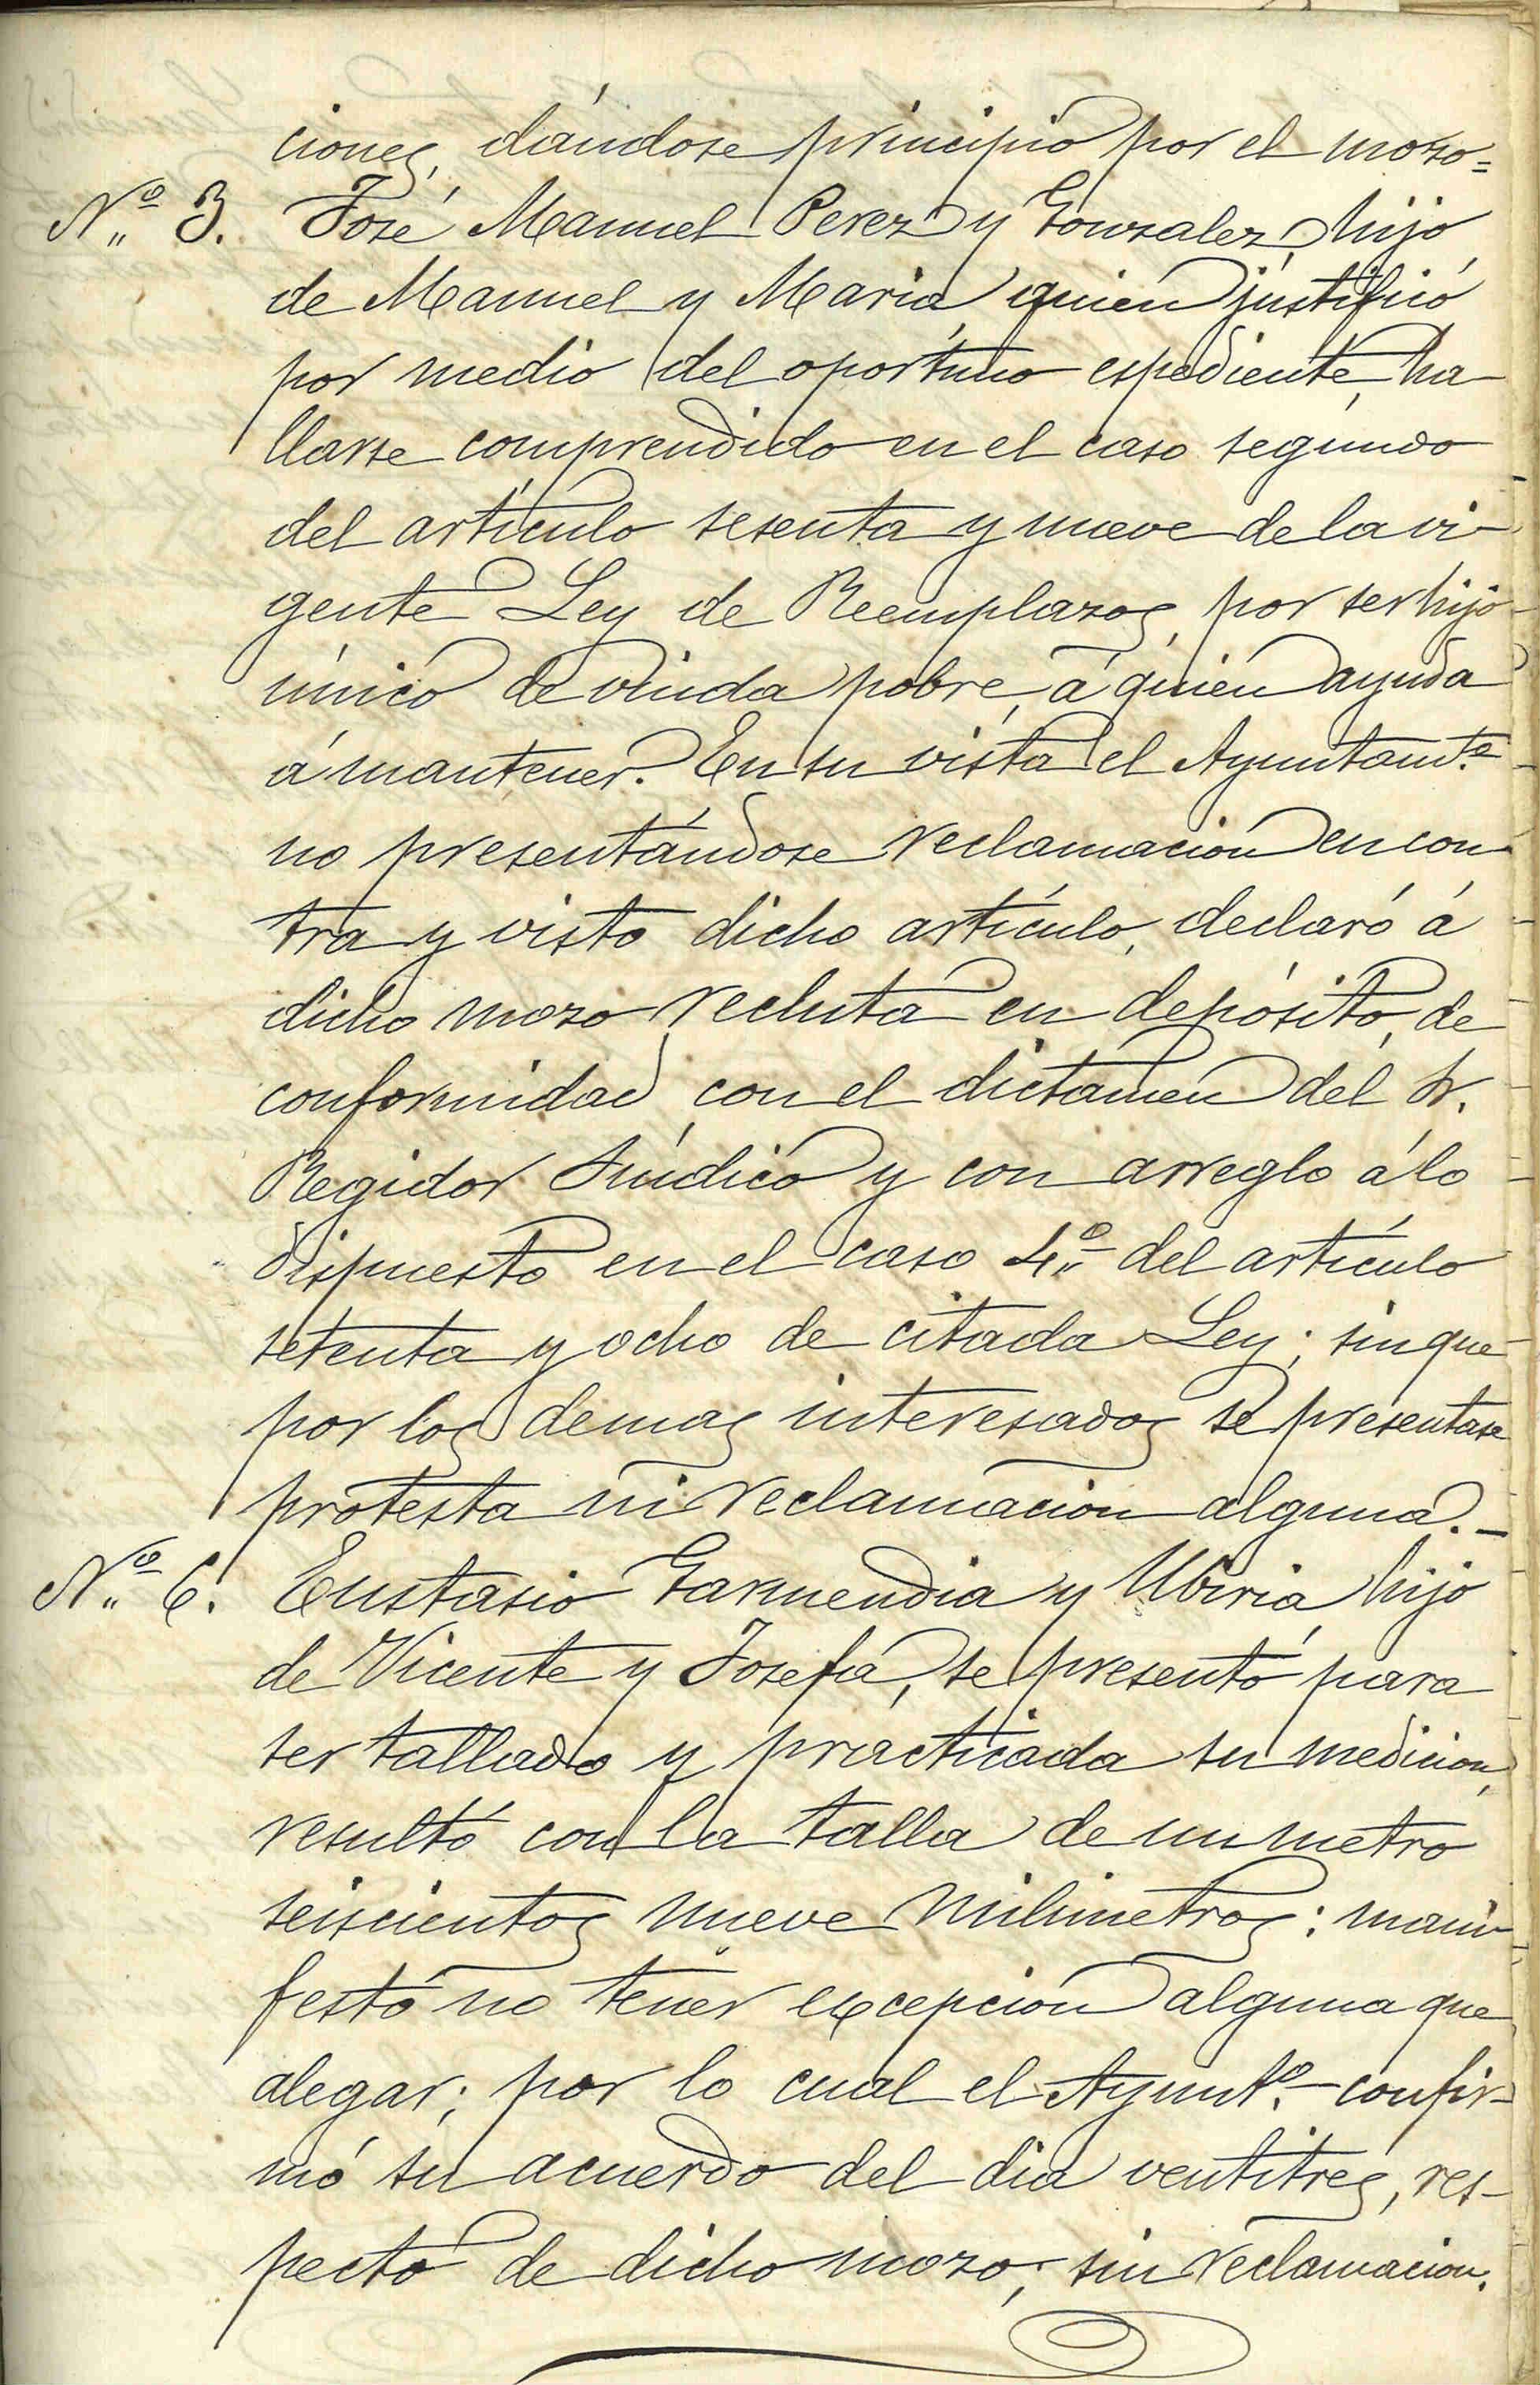 ciones, dándose principio por el mozo=
Nº 3. José Manuel Perez y Gonzalez, hijo
de Manuel y Maria, quien justificó
por medio del oportuno espediente, ha-
llarse comprendido en el caso segundo
del artículo sesenta y nueve de la vi-
gente Ley de Reemplazos, por ser hijo
único de viuda pobre, á quien ayuda
á mantener. En su vista el Ayuntamtº
no presentándose reclamacion en con-
tra y visto dicho artículo, declaró á
dicho mozo recluta en depósito, de
conformidad con el dictámen del Sr.
Regidor Síndico y con arreglo á lo
dispuesto en el caso 4º del artículo
setenta y ocho de citada Ley; sin que
por los demas interesados se presentase
protesta ni reclamacion alguna.-
Nº 6. Eustasio Garmendia y Ubiria hijo
de Vicente y Josefa, se presentó para
ser tallado y practicada su medicion,
resultó con la talla de un metro
seiscientos nueve milimetros: mani-
festó no tener excepcion alguna que
alegar; por lo cual el Ayuntº confir-
mó su acuerdo del dia ventitres, res-
pecto de dicho mozo; sin reclamacion.